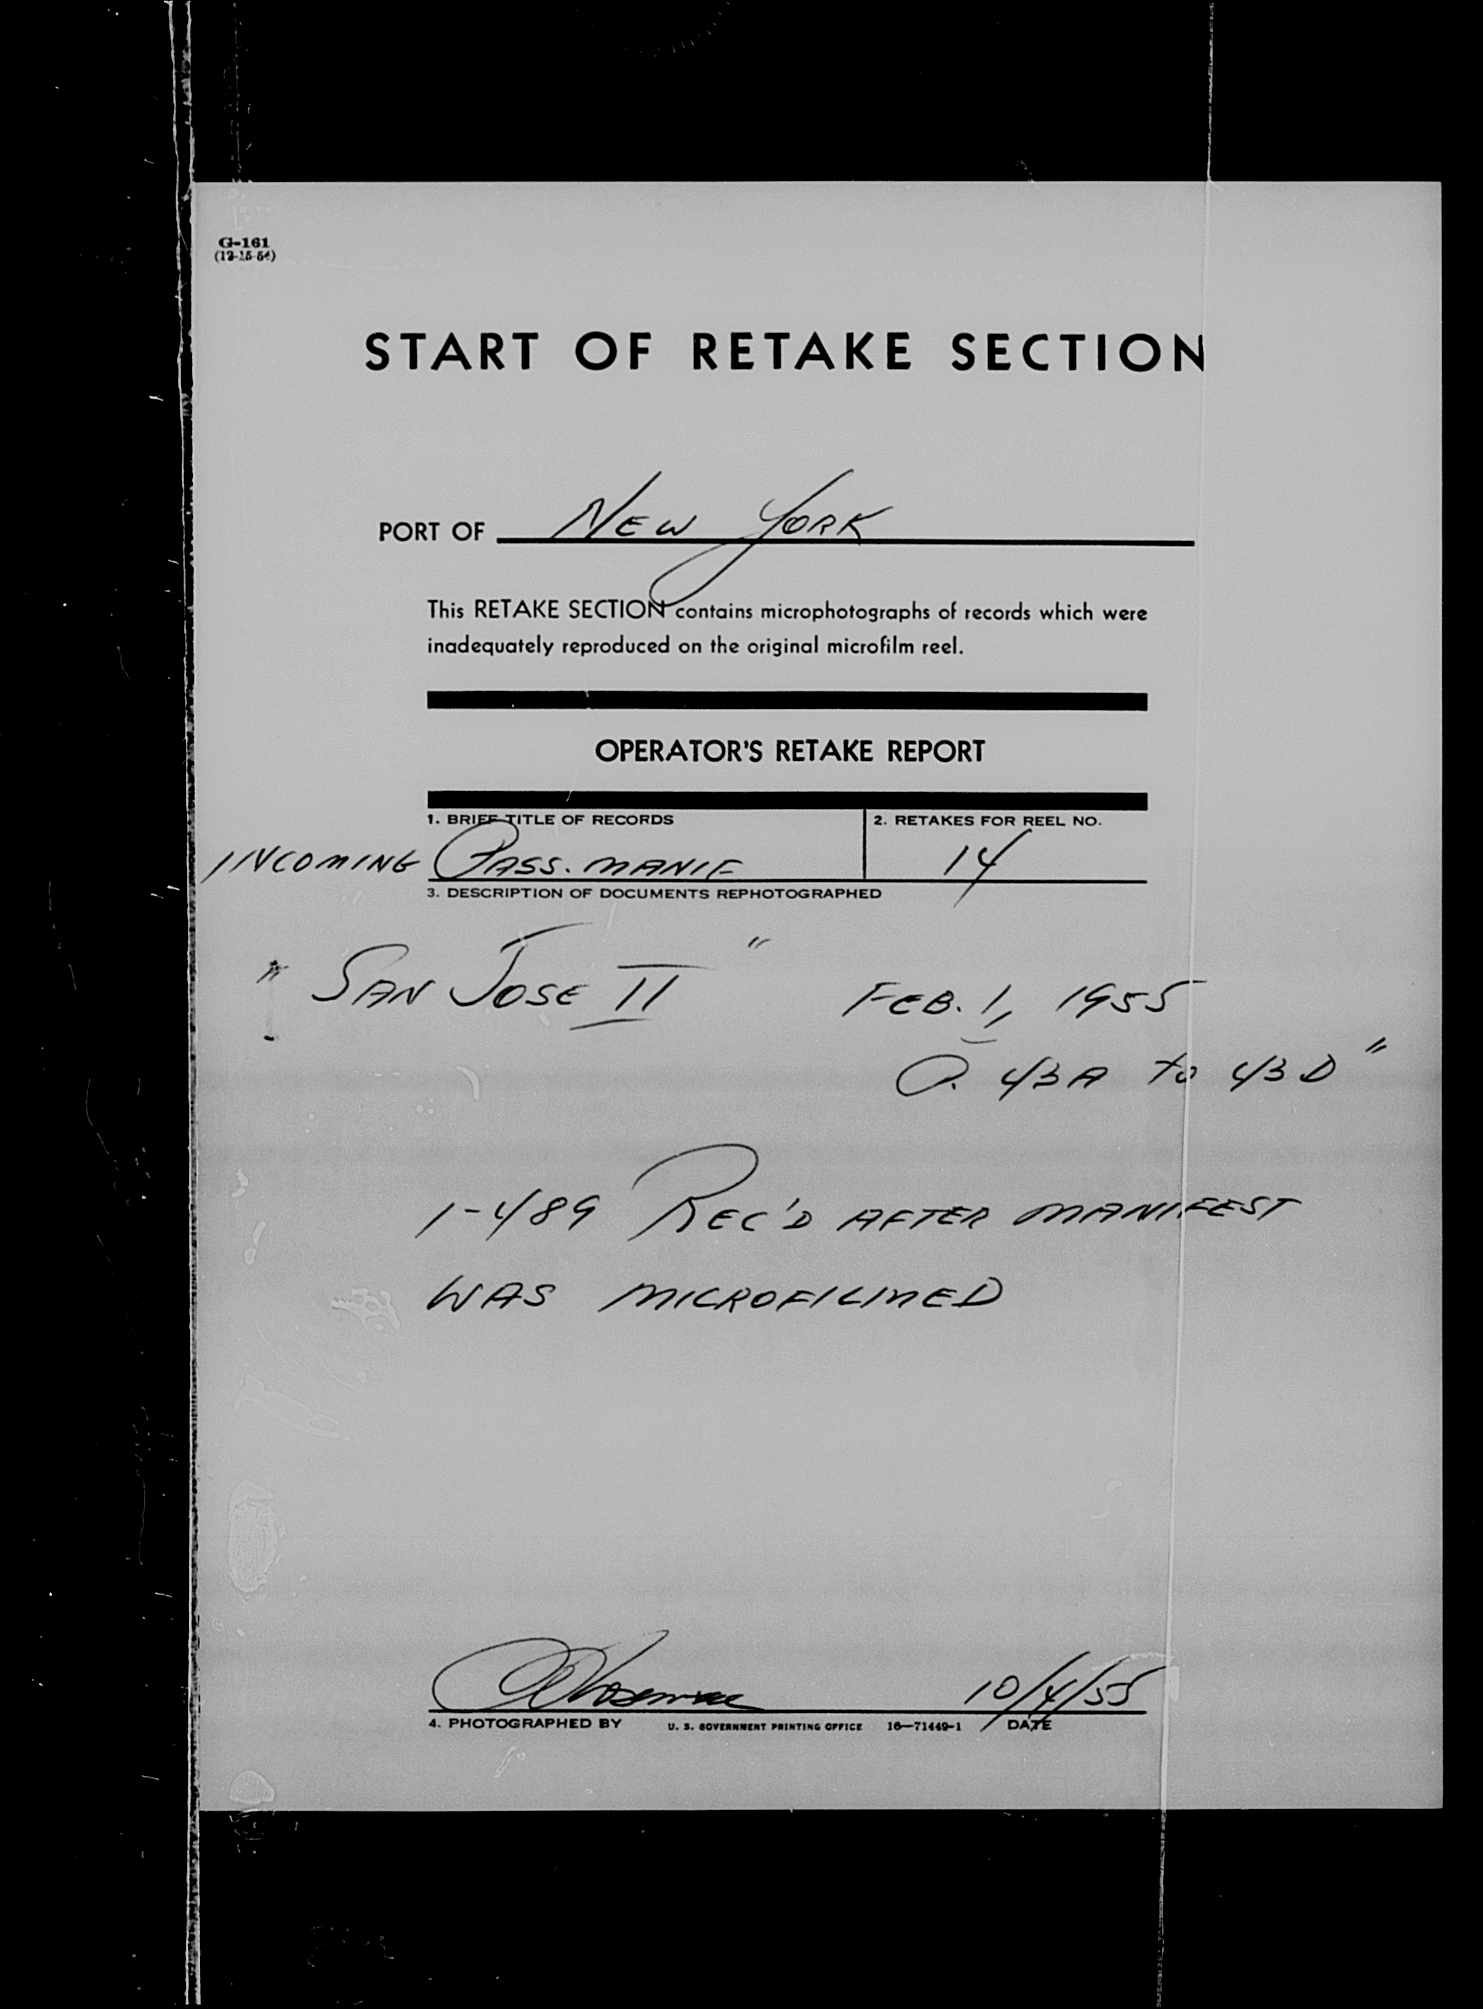 G-161
(12-15-54)
START OF RETAKE SECTION
PORT OF NEW YORK
This RETAKE SECTION contains microphotographs of records which were
inadequately reproduced on the original microfilm reel.
OPERATOR'S RETAKE REPORT
1. BRIEF TITLE OF RECORDS 2. RETAKES FOR REEL NO.
INCOMING PASS. MANIF 14
3. DESCRIPTION OF DOCUMENTS REPHOTOGRAPHED
" SAN JOSE II " FEB. 1, 1955
P. 43A to 43D "
1-489 REC'D AFTER MANIFEST
WAS MICROFILMED
10/4/55
4. PHOTOGRAPHED BY U. S. GOVERNMENT PRINTING OFFICE 16—71449-1 DATE